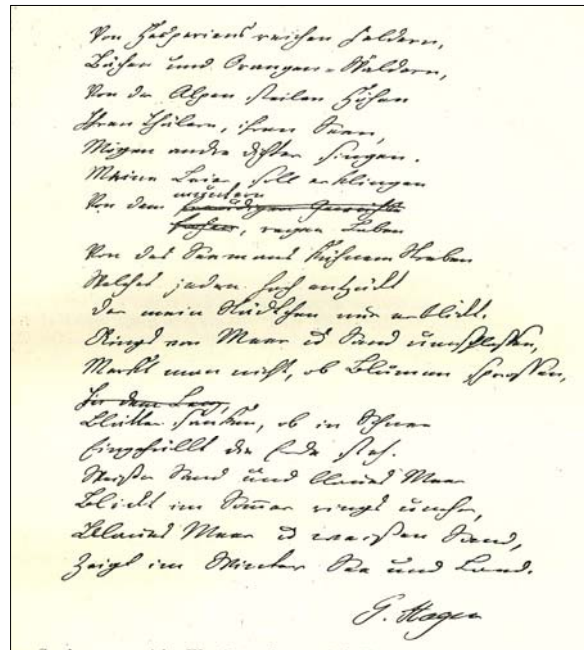 Von Hesperiens reichen Feldern,
Bächen und Orangen-Wäldern,
Von der Alpen steilen Höhen
Ihren Thälern, ihren Seen,
Mögen andre Dichter singen.
Meine Leier soll erklingen
muntern
Von dem freudigen Gewühle
, regen Leben
Von des Seemans kühnem Streben
Welches jeden hoch entzückt
Der mein Städtchen nur erblickt.
Rings von Meer u Sand umschlossen,
Merkt man nicht, ob Blumen sprossen,
In dem Lenz,
Blätter sinken, ob in Schnee
Eingehüllt die Erde steh.
Weißer Sand und blaues Meer
Blickt im Sommer rings umher,
Blaues Meer u weißen Sand,
Zeigt im Winter See und Land.
G. Hagen